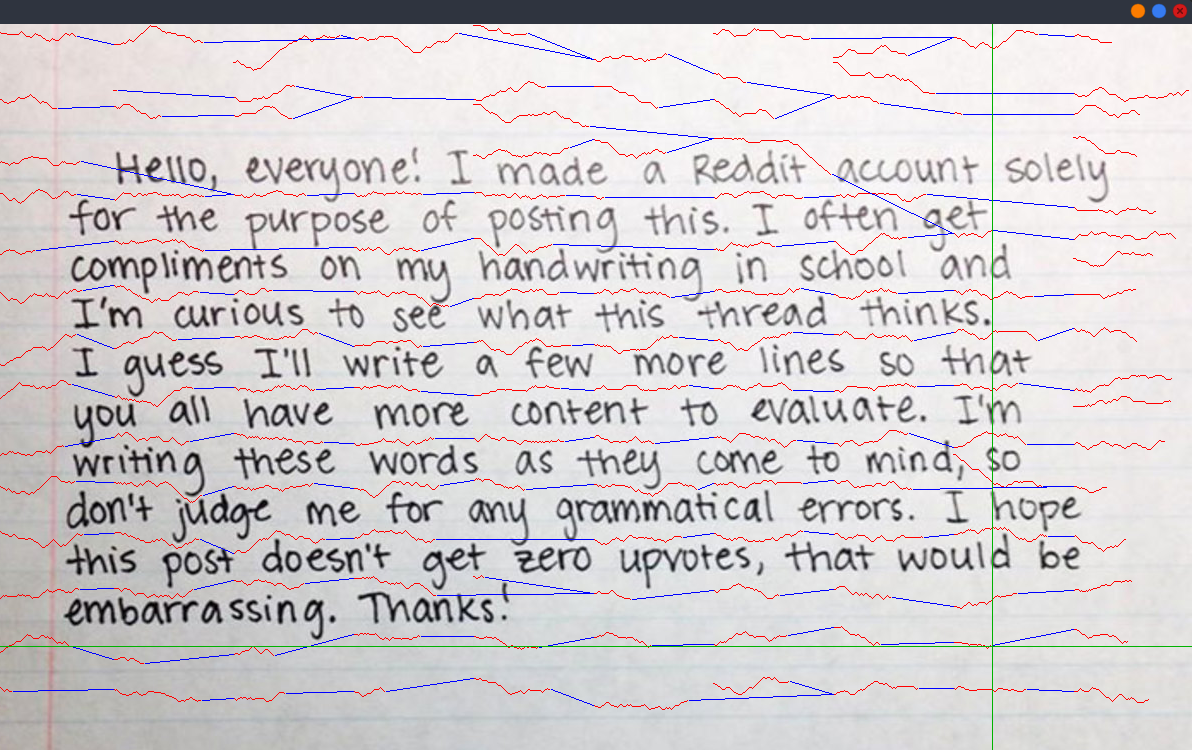 Hello, everyone! I made a Reddit account solely
for the purpose of posting this. I often get
compliments on my handwriting in school and
I'm curious to see what this thread thinks.
I guess I'll write a few more lines so that
you all have more content to evaluate. I'm
writing these words as they come to mind, so
don't judge me for any grammatical errors. I hope
this post doesn't get zero upvotes, that would be
embarrassing. Thanks!